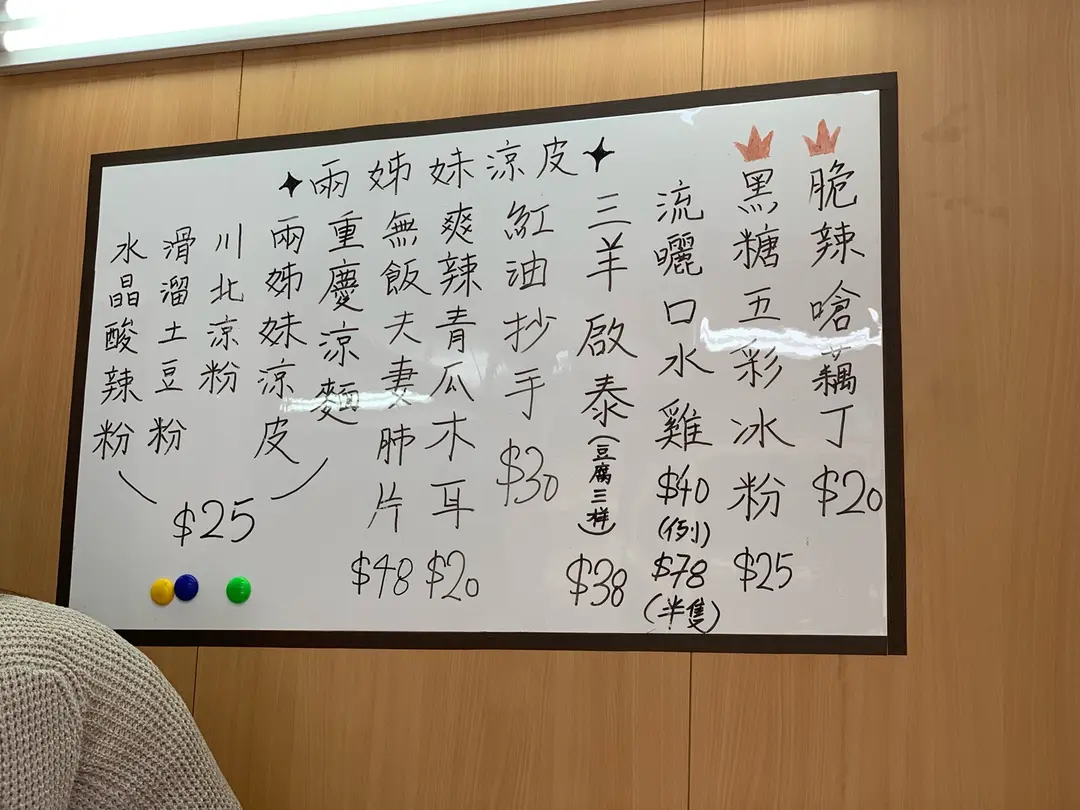 兩姊妹涼皮
脆辣嗆藕丁 $20
黑糖五彩冰粉 $25
流曬口水雞 $40 (例) $78 (半隻)
三羊啟泰 (豆腐三樣) $38
紅油抄手 $30
爽辣青瓜木耳 $20
無飯夫妻肺片 $48
重慶涼麵
兩姊妹涼皮
川北涼粉
滑溜土豆粉
水晶酸辣粉
$25